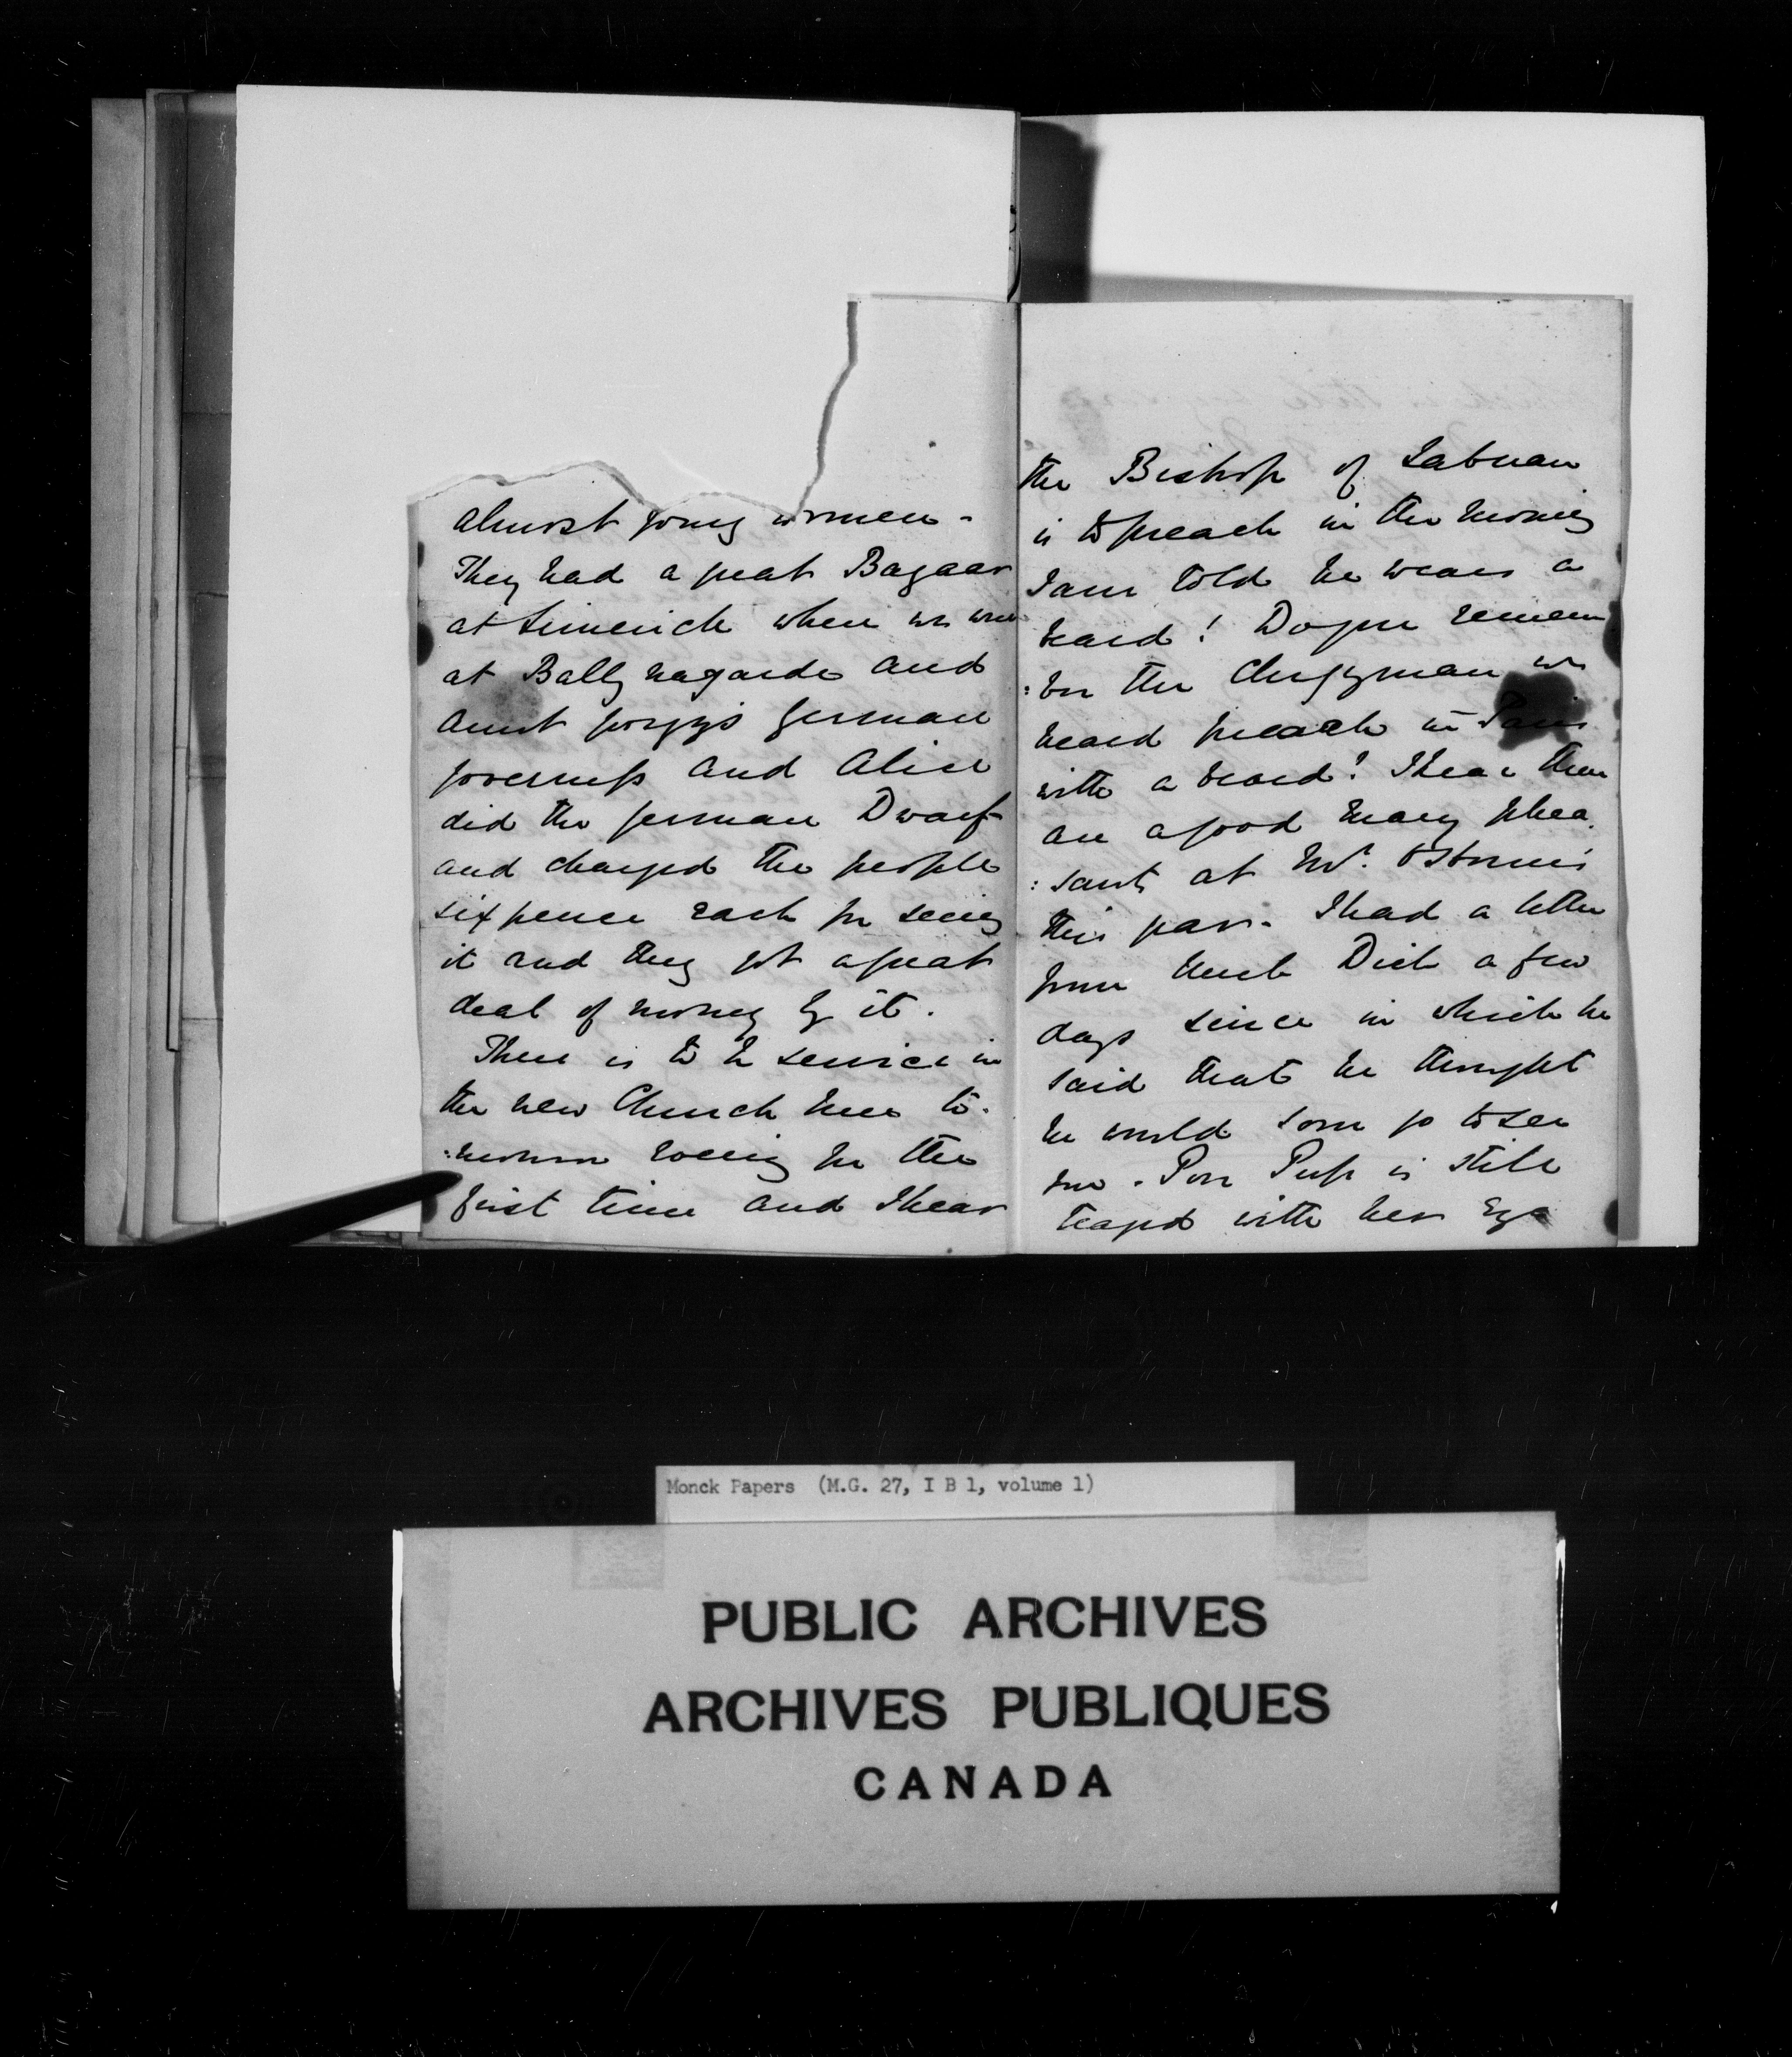 almost young women -
They had a great Bazaar
at Limerick when we were
at Ballynagarde and
Aunt Georgy's German
governess and Alice
did the German Dwarf
and charged the people
sixpence each for seeing
it and they got a great
deal of money by it.
There is to be service in
the new Church here to-
:morrow evening for the
first time and I hear
the Bishop of Labuan
is to preach in the morning
I am told he wears a
beard! Do you remem
:ber the Clergyman we
heard preach in Paris
with a beard? I hear there
are a good many phea
:sants at Mr. Osborne's
this year. I had a letter
from Uncle Dick a few
days since in which he
said that he thought
he would soon go to see
you. Poor Pup is still
teazed with her Eye
Monck Papers (M.G. 27, I B 1, volume 1)
PUBLIC ARCHIVES
ARCHIVES PUBLIQUES
CANADA